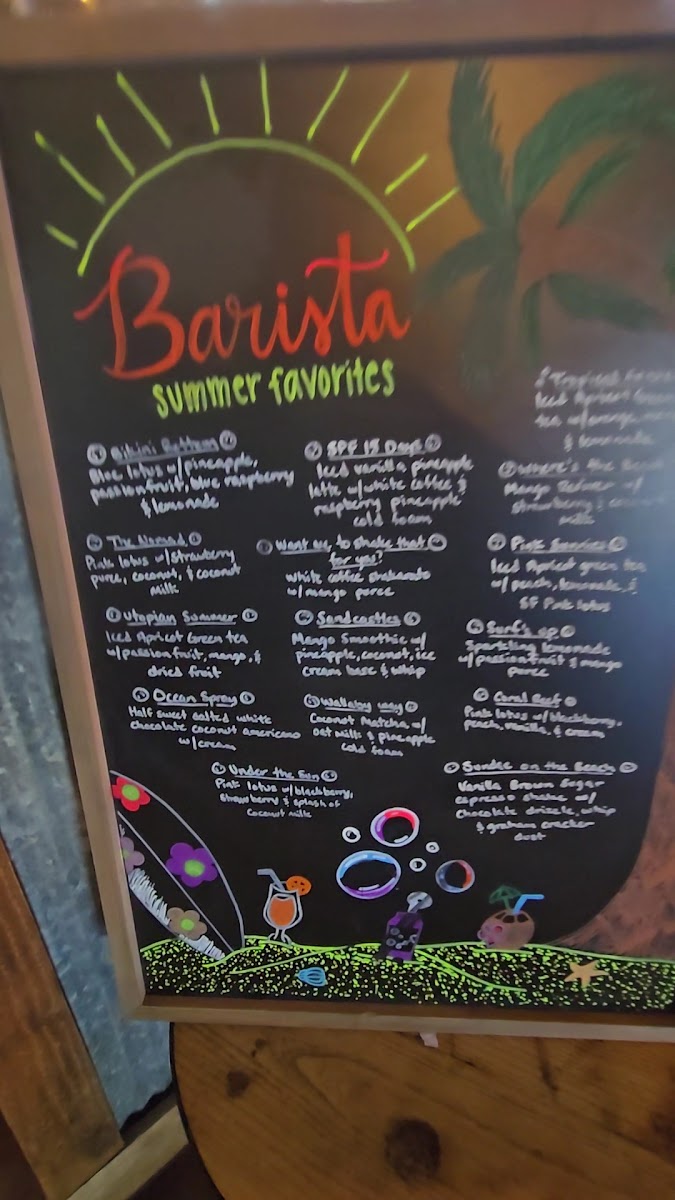 Barista
summer favorites
Bikini Bottom
Blue lotus w/pineapple,
passionfruit, blue raspberry
& lemonade
The Nomad
Pink lotus w/strawberry
puree, coconut, & coconut
milk
Utopian Summer
Iced Apricot Green tea
w/passion fruit, mango, &
dried fruit
Ocean Spray
Half sweet salted white
chocolate coconut americano
w/cream
Under the Sun
Pink lotus w/blackberry,
strawberry & splash of
coconut milk
SPF 15 Days
Iced vanilla pineapple
latte w/white coffee &
raspberry pineapple
cold foam
Want me to shake that
for you?
White coffee shakerato
w/mango puree
Sandcastles
Mango Smoothie w/
pineapple, coconut, ice
cream base & whip
Wallaby way
Coconut Matcha w/
oat milk & pineapple
cold foam
Tropical
Iced Apricot Green
tea w/mango,
& lemonade
Where's the
Mango w/
strawberry & coconut
milk
Pink Sunrise
Iced Apricot green tea
w/peach, lemonade, &
SF Pink lotus
Surf's up
Sparkling lemonade
w/passionfruit & mango
puree
Coral Reef
Pink lotus w/blackberry,
peach, vanilla, & cream
Sundae on the Beach
Vanilla Brown Sugar
espresso shake w/
chocolate drizzle, whip
& graham cracker
dust